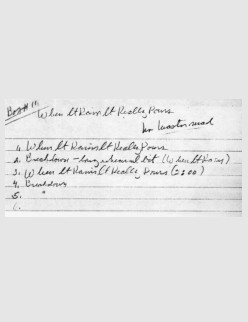 Box #1
When It Rains It Really Pours
no master mud
1. When It Rains It Really Pours
2. Breakdown - long rehearsal bit (When It Rains)
3. When It Rains It Really Pours (2:00)
4. Breakdown
5. "
6.